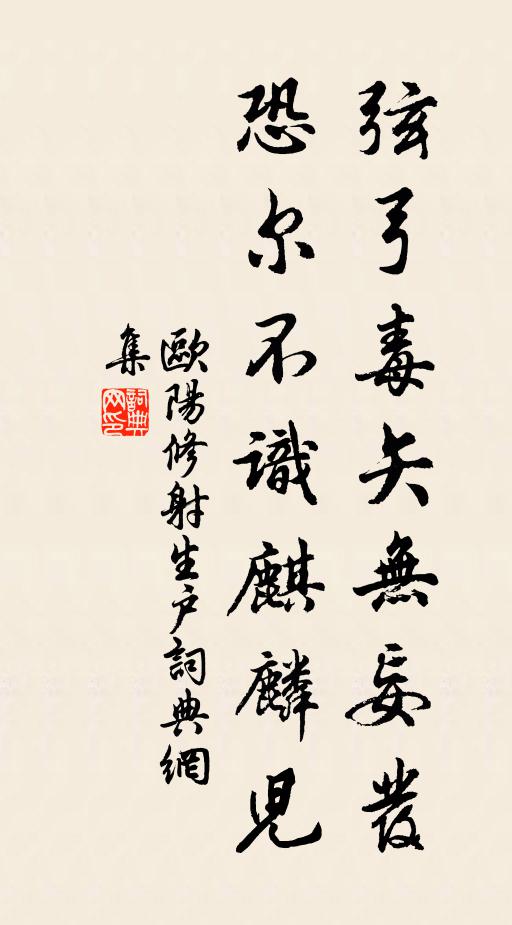 弦弓毒矢無妄發
恐尔不識麒麟兒
歐陽修射生户詞典網
集
詞典
网印